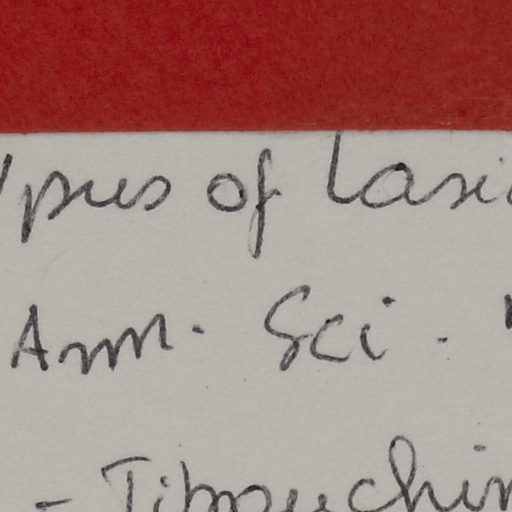 ypus of Lasi
Ann. Sci.
- Tibouchin